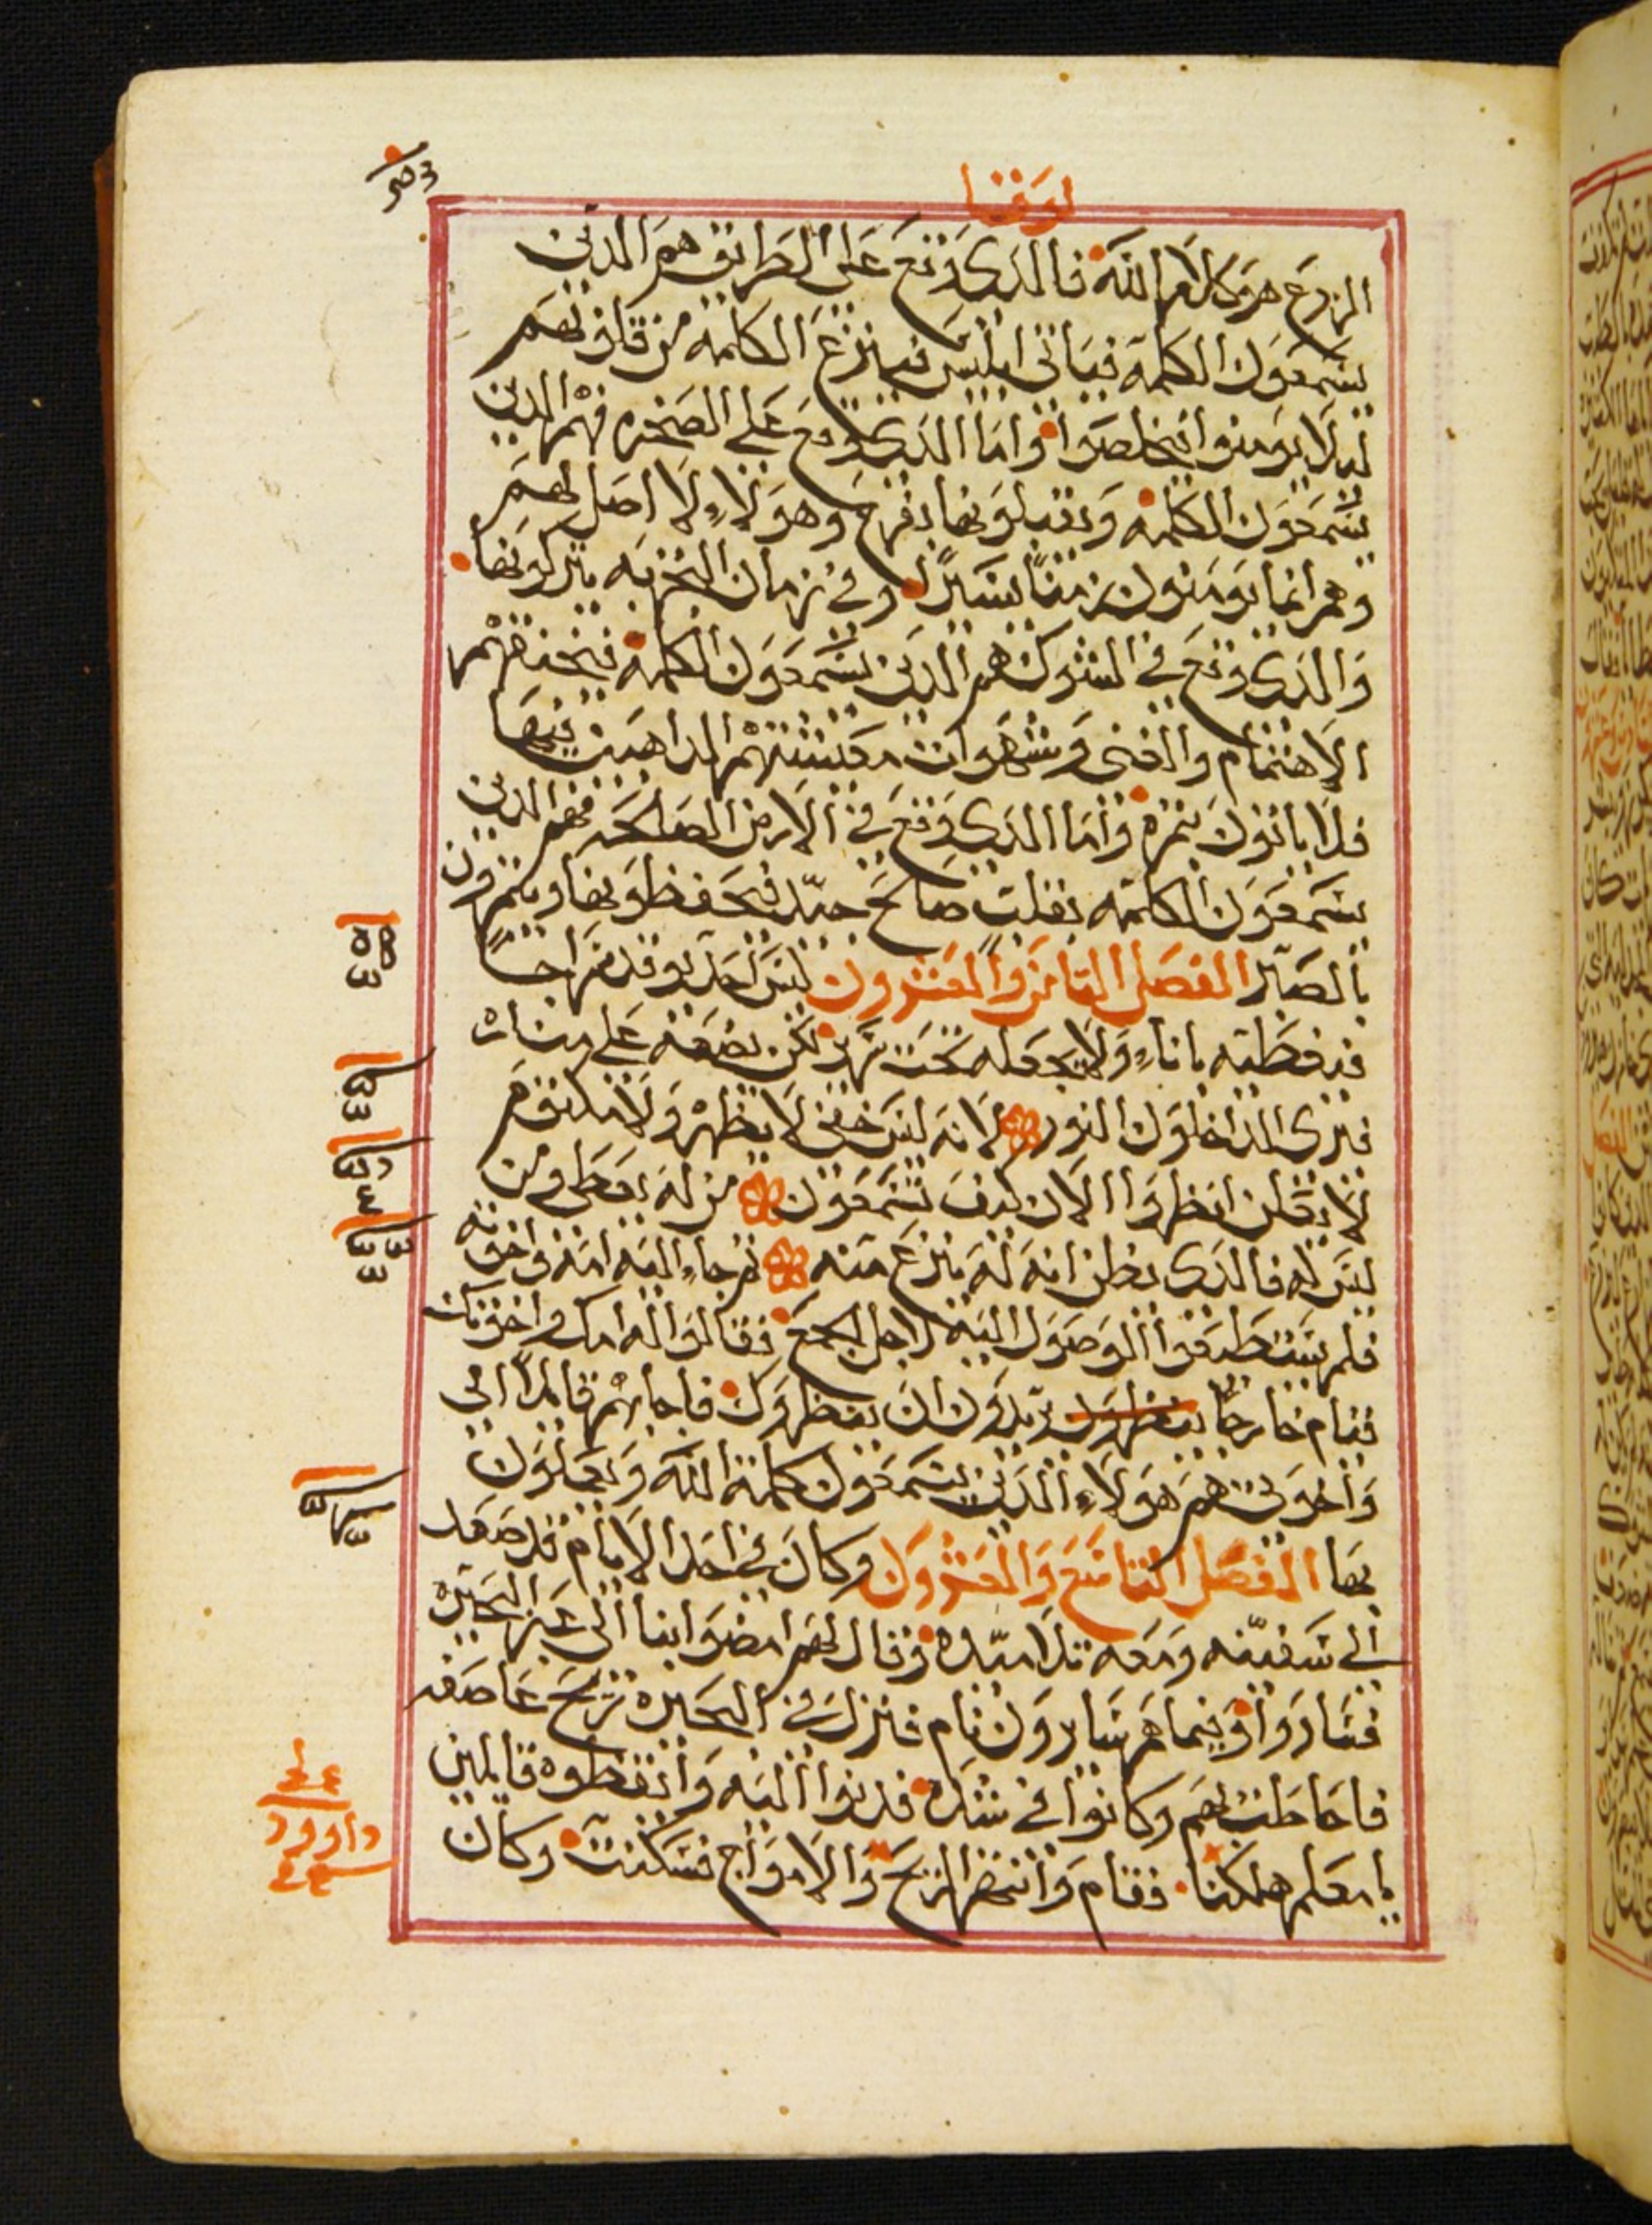 لوقا
الزرع هو كلام الله فالدى وقع على الطرايق هم الدين
يسمعون الكلمة فياتى ابليس فينزع الكلمه من قلوبهم
ليلا يومنوا فيخلصوا واما الدى وقع على الصخره فهم الدين
يسمعون الكلمه ويقبلونها بفرح وهولاء لا اصل لهم
وهم انما يومنون زمناً يسيراً وفى زمان التجربه يتركونها
والدى وقع فى الشوك هم الدين يسمعون الكلمه فيخنقهم
الاهتمام والغنى وشهوات معيشتهم الداهبين فيها
فلا ياتون بثمره واما الدى وقع فى الارض الصالحه فهم الدين
يسمعون الكلمه بقلب صالح جيّد فيحفظونها ويثمرون
بالصبر الفصل التامن والعشرون ليس احد يوقد سراجاً
فيغطيه باناء ولا يجعله تحت سرير لكن يضعه على مناره
فيرى الداخلون النور لانه ليس خفى لا يظهر ولا مكتوم
لا يعلن انظروا الان كيف تسمعون من له يعطى ومن
ليس له فالدى يظن انه له ينزع منه ثم جاء اليه امه واخوته
فلم يستطيعوا الوصول اليه لاجل الجمع فقالوا له امك واخوتك
قيام خارجاً ينظرون يريدون ان ينظروك فاجابهم قايلاً امى
واخوتى هم هولاء الدين يسمعون كلمة الله ويعملون
بها الفصل التاسع والعشرون وكان فى احد الايام قد صعد
الى سفينه ومعه تلاميده وقال لهم امضوا بنا الى عبر البحيره
فساروا وبينما هم سايرون نام فنزل فى البحيره ريح عاصفه
فاحاطت بهم وكانوا فى شده فدنوا اليه وايقظوه قايلين
يا معلم هلكنا فقام وانتهر الريح والامواج فسكنت وكان
داوود